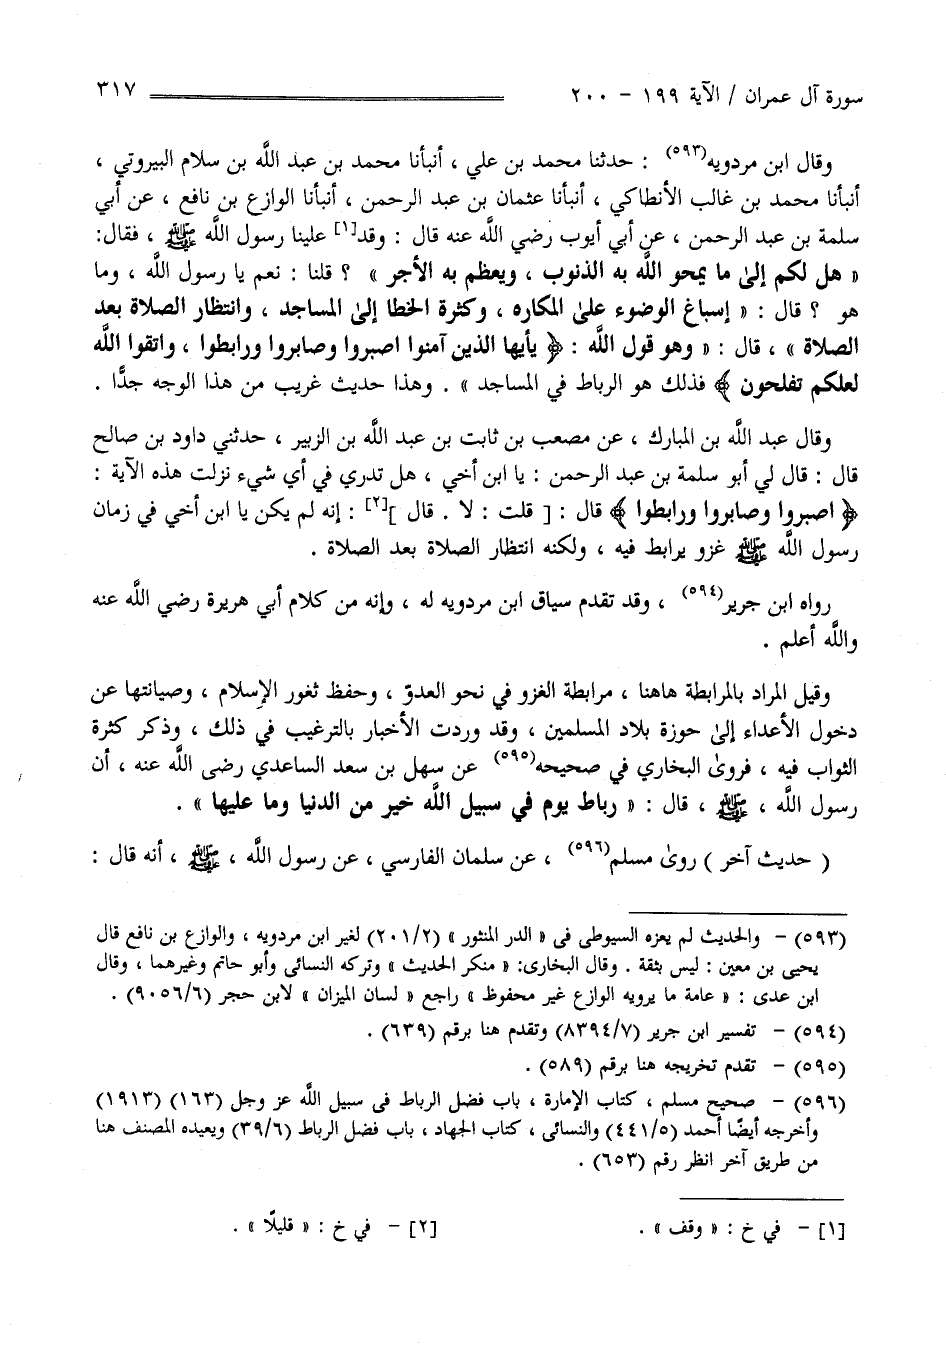 سورة آل عمران / الآية ١٩٩ – ٢٠٠
٣١٧
وقال ابن مردويه(٥٩٣) : حدثنا محمد بن علي ، أنبأنا محمد بن عبد اللَّه بن سلام البيروتي ،
أنبأنا محمد بن غالب الأنطاكي ، أنبأنا عثمان بن عبد الرحمن ، أنبأنا الوازع بن نافع ، عن أبي
سلمة بن عبد الرحمن ، عن أبي أيوب رضي اللَّه عنه قال : وقد[١] علينا رسول اللَّه ﷺ ، فقال:
« هل لكم إلىٰ ما يمحو اللَّه به الذنوب ، ويعظم به الأجر » ؟ قلنا : نعم يا رسول اللَّه ، وما
هو ؟ قال : « إسباغ الوضوء علىٰ المكاره ، وكثرة الخطا إلىٰ المساجد ، وانتظار الصلاة بعد
الصلاة » ، قال : « وهو قول اللَّه : ﴿ يأيها الذين آمنوا اصبروا وصابروا ورابطوا ، واتقوا اللَّه
لعلكم تفلحون ﴾ فذلك هو الرباط في المساجد » . وهذا حديث غريب من هذا الوجه جدًّا .
وقال عبد اللَّه بن المبارك ، عن مصعب بن ثابت بن عبد اللَّه بن الزبير ، حدثني داود بن صالح
قال : قال لي أبو سلمة بن عبد الرحمن : يا ابن أخي ، هل تدري في أي شيء نزلت هذه الآية :
﴿ اصبروا وصابروا ورابطوا ﴾ قال : [ قلت : لا . قال ][٢] : إنه لم يكن يا ابن أخي في زمان
رسول اللَّه ﷺ غزو يرابط فيه ، ولكنه انتظار الصلاة بعد الصلاة .
رواه ابن جرير(٥٩٤) ، وقد تقدم سياق ابن مردويه له ، وإنه من كلام أبي هريرة رضي اللَّه عنه
واللَّه أعلم .
وقيل المراد بالمرابطة هاهنا ، مرابطة الغزو في نحو العدوّ ، وحفظ ثغور الإِسلام ، وصيانتها عن
دخول الأعداء إلىٰ حوزة بلاد المسلمين ، وقد وردت الأخبار بالترغيب في ذلك ، وذكر كثرة
الثواب فيه ، فروىٰ البخاري في صحيحه(٥٩٥) عن سهل بن سعد الساعدي رضى اللَّه عنه ، أن
رسول اللَّه ، ﷺ ، قال : « رباط يوم في سبيل اللَّه خير من الدنيا وما عليها » .
( حديث آخر ) روىٰ مسلم(٥٩٦) ، عن سلمان الفارسي ، عن رسول اللَّه ، ﷺ ، أنه قال :
(٥٩٣) – والحديث لم يعزه السيوطى فى « الدر المنثور » (٢٠١/٢) لغير ابن مردويه ، والوازع بن نافع قال
يحيى بن معين : ليس بثقة . وقال البخارى: « منكر الحديث » وتركه النسائى وأبو حاتم وغيرهما ، وقال
ابن عدى : « عامة ما يرويه الوازع غير محفوظ » راجع « لسان الميزان » لابن حجر (٩٠٥٦/٦) .
(٥٩٤) – تفسير ابن جرير (٨٣٩٤/٧) وتقدم هنا برقم (٦٣٩) .
(٥٩٥) – تقدم تخريجه هنا برقم (٥٨٩) .
(٥٩٦) – صحيح مسلم ، كتاب الإمارة ، باب فضل الرباط فى سبيل اللَّه عز وجل (١٦٣) (١٩١٣)
وأخرجه أيضًا أحمد (٤٤١/٥) والنسائى ، كتاب الجهاد ، باب فضل الرباط (٣٩/٦) ويعيده المصنف هنا
من طريق آخر انظر رقم (٦٥٣) .
[١] – في خ : « وقف » .
[٢] – في خ : « قليلًا » .